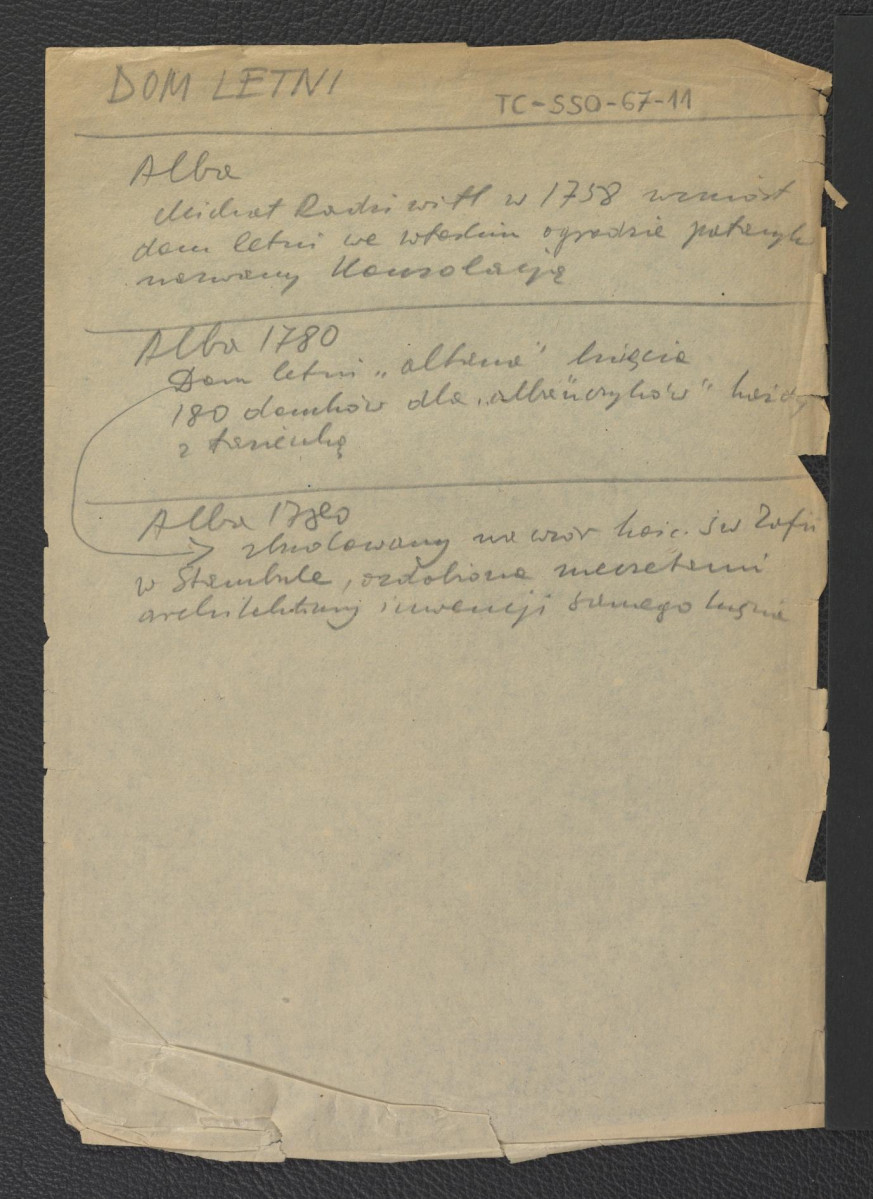 DOM LETNI
TC-SSO-67-11
Alba
Michał Radziwiłł w 1758 wzniósł
dom letni we włoskim ogrodzie
nazwany Konsolacją
Alba 1780
Dom letni „altana" księcia
180 domków dla „albańczyków" każdy
z łazienką
Alba 1780
zbudowany na wzór kośc. św Zofii
w Stambule, ozdobiona meczetami
architektury inwencji samego księcia